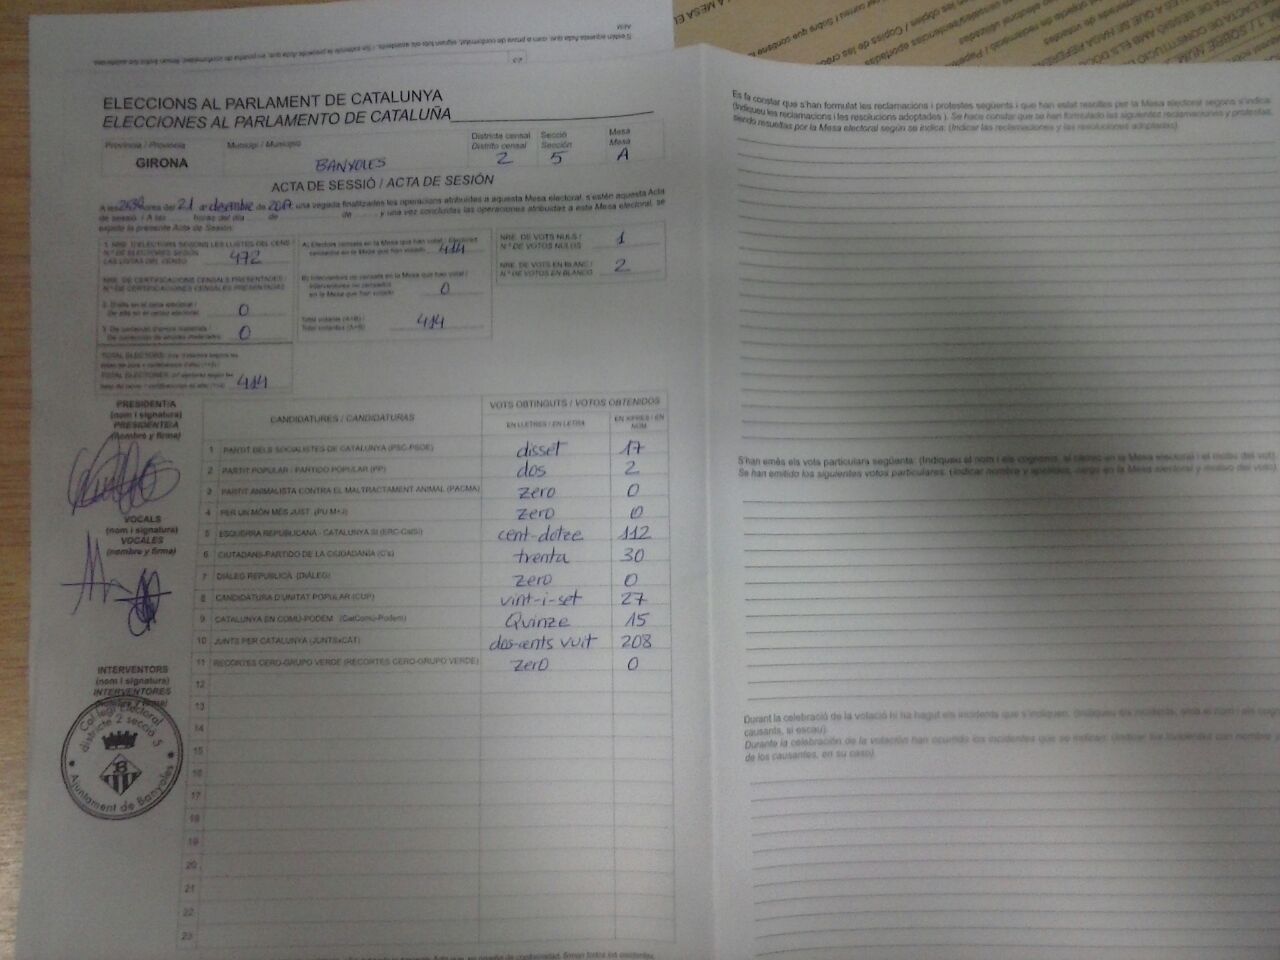 ELECCIONS AL PARLAMENT DE CATALUNYA
ELECCIONES AL PARLAMENTO DE CATALUÑA
Província / Provincia
Municipi / Municipio
Districte censal
Distrito censal
Secció
Sección
Mesa
Mesa
GIRONA
BANYOLES
2
5
A
ACTA DE SESSIÓ / ACTA DE SESIÓN
A les hores del 21 de desembre de 2017 una vegada finalitzades les operacions atribuïdes a aquesta Mesa electoral, s'estén aquesta Acta
de sessió. / A las horas del día de de y una vez concluidas las operaciones atribuidas a esta Mesa electoral, se
expide la presente Acta de Sesión:
1. NRE. D'ELECTORS SEGONS LES LLISTES DEL CENS /
N.º DE ELECTORES SEGÚN
LAS LISTAS DEL CENSO
472
NRE. DE CERTIFICACIONS CENSALS PRESENTADES /
N.º DE CERTIFICACIONES CENSALES PRESENTADAS
0
0
414
A) Electors censats en la Mesa que han votat / Electores
censados en la Mesa que han votado
414
B) Interventors no censats en la Mesa que han votat /
Interventores no censados
en la Mesa que han votado
0
Total votants (A+B) /
Total votantes (A+B)
414
NRE. DE VOTS NULS /
N.º DE VOTOS NULOS
1
NRE. DE VOTS EN BLANC /
N.º DE VOTOS EN BLANCO
2
PRESIDENT/A
(nom i signatura)
PRESIDENTE/A
(nombre y firma)
VOCALS
(nom i signatura)
VOCALES
(nombre y firma)
INTERVENTORS
(nom i signatura)
INTERVENTORES
Col·legi Electoral
districte 2 secció 5
Ajuntament de Banyoles
CANDIDATURES / CANDIDATURAS
VOTS OBTINGUTS / VOTOS OBTENIDOS
EN LLETRES / EN LETRA
EN XIFRES / EN NÚM.
1 PARTIT DELS SOCIALISTES DE CATALUNYA (PSC-PSOE) disset 17
2 PARTIT POPULAR / PARTIDO POPULAR (PP) dos 2
3 PARTIT ANIMALISTA CONTRA EL MALTRACTAMENT ANIMAL (PACMA) zero 0
4 PER UN MÓN MÉS JUST (PUM+J) zero 0
5 ESQUERRA REPUBLICANA - CATALUNYA SÍ (ERC-CatSí) cent-dotze 112
6 CIUTADANS-PARTIDO DE LA CIUDADANÍA (C's) trenta 30
7 DIÀLEG REPÚBLICA (DIÀLEG) zero 0
8 CANDIDATURA D'UNITAT POPULAR (CUP) vint-i-set 27
9 CATALUNYA EN COMÚ-PODEM (CatComú-Podem) Quinze 15
10 JUNTS PER CATALUNYA (JUNTSxCAT) dos-cents vuit 208
11 RECORTES CERO-GRUPO VERDE (RECORTES CERO-GRUPO VERDE) zero 0
12
13
14
15
16
17
18
19
20
21
22
23
Es fa constar que s'han formulat les reclamacions i protestes següents i que han estat resoltes per la Mesa electoral segons s'indica:
(Indiqueu les reclamacions i les resolucions adoptades ). Se hace constar que se han formulado las siguientes reclamaciones y protestas,
siendo resueltas por la Mesa electoral según se indica: (Indicar las reclamaciones y las resoluciones adoptadas)
S'han emès els vots particulars següents: (Indiqueu el nom i els cognoms, el càrrec en la Mesa electoral i el motiu del vot)
Se han emitido los siguientes votos particulares: (Indicar nombre y apellidos, cargo en la Mesa electoral y motivo del voto)
Durant la celebració de la votació hi ha hagut els incidents que s'indiquen: (Indiqueu els incidents, amb el nom i els
causants, si escau).
Durante la celebración de la votación han ocurrido los incidentes que se indican: (Indicar los incidentes con nombre y
de los causantes, en su caso).